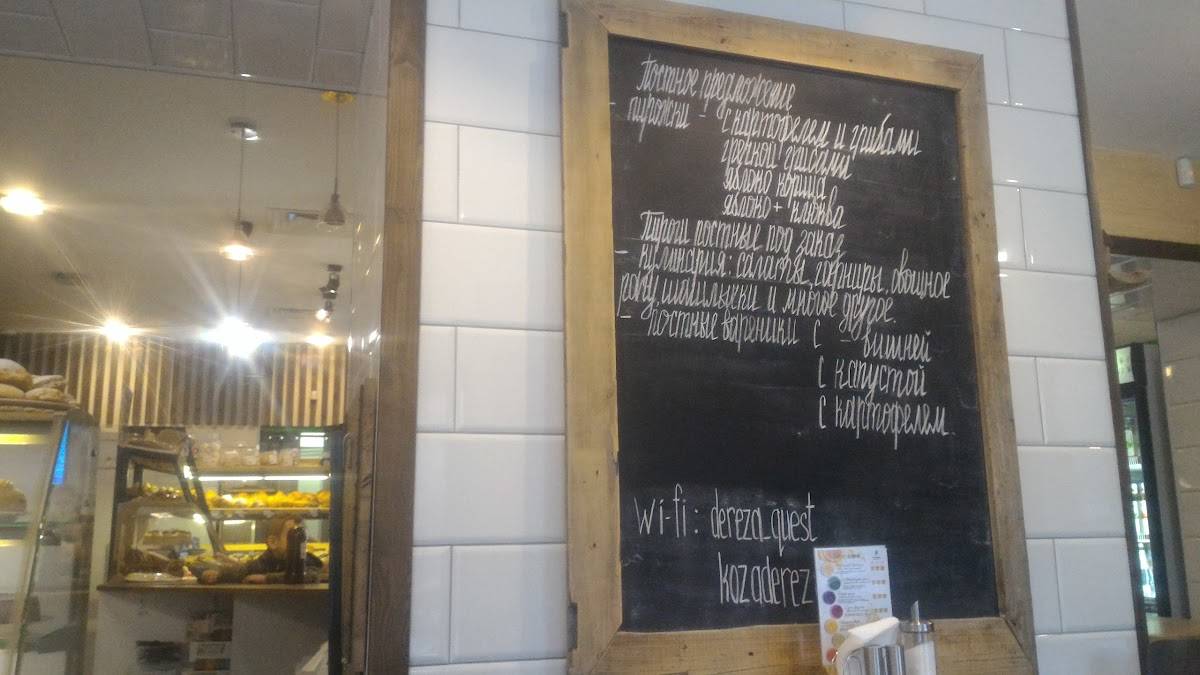 Постное предложение
пирожки - с картофелем и грибами
гречкой грибами
яблоко корица
яблоко + клюква
Пироги постные под заказ
- кулинария: салаты, гарниры, овощное
рагу, шашлычки и многое другое.
- постные вареники с - вишней
с капустой
с картофелем
wi-fi: dereza_quest
kozaderez